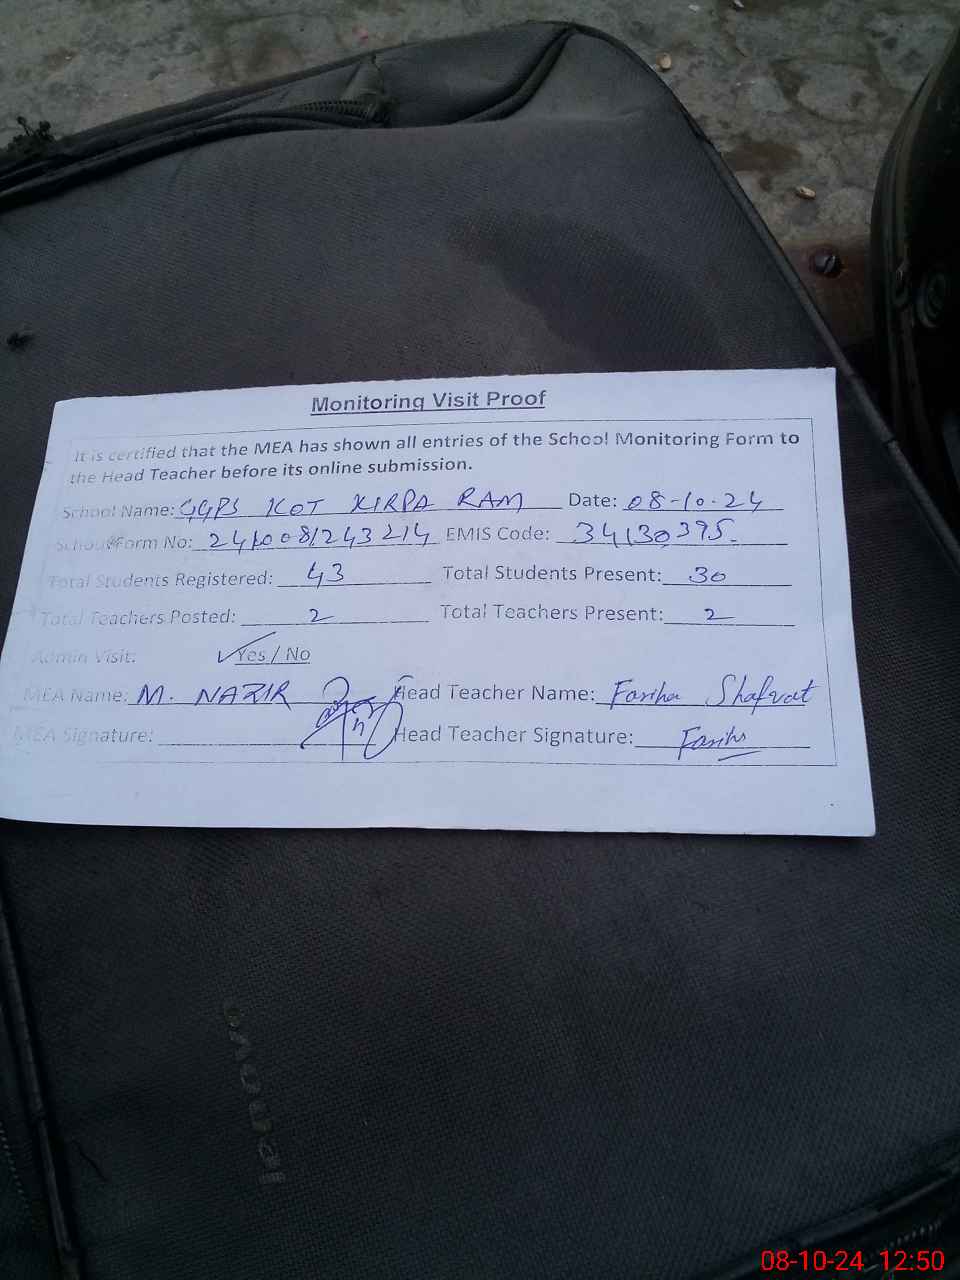 Monitoring Visit Proof
It is certified that the MEA has shown all entries of the School Monitoring Form to
the Head Teacher before its online submission.
School Name: GGPS KOT KIRPA RAM Date: 08-10-24
School Form No: 241008/243214 EMIS Code: 34130395
Total Students Registered: 43 Total Students Present: 30
Total Teachers Posted: 2 Total Teachers Present: 2
Admin Visit: Yes / No
MEA Name: M. NAZIR Head Teacher Name: Fariha Shafqat
MEA Signature: Head Teacher Signature: Fariha
08-10-24 12:50